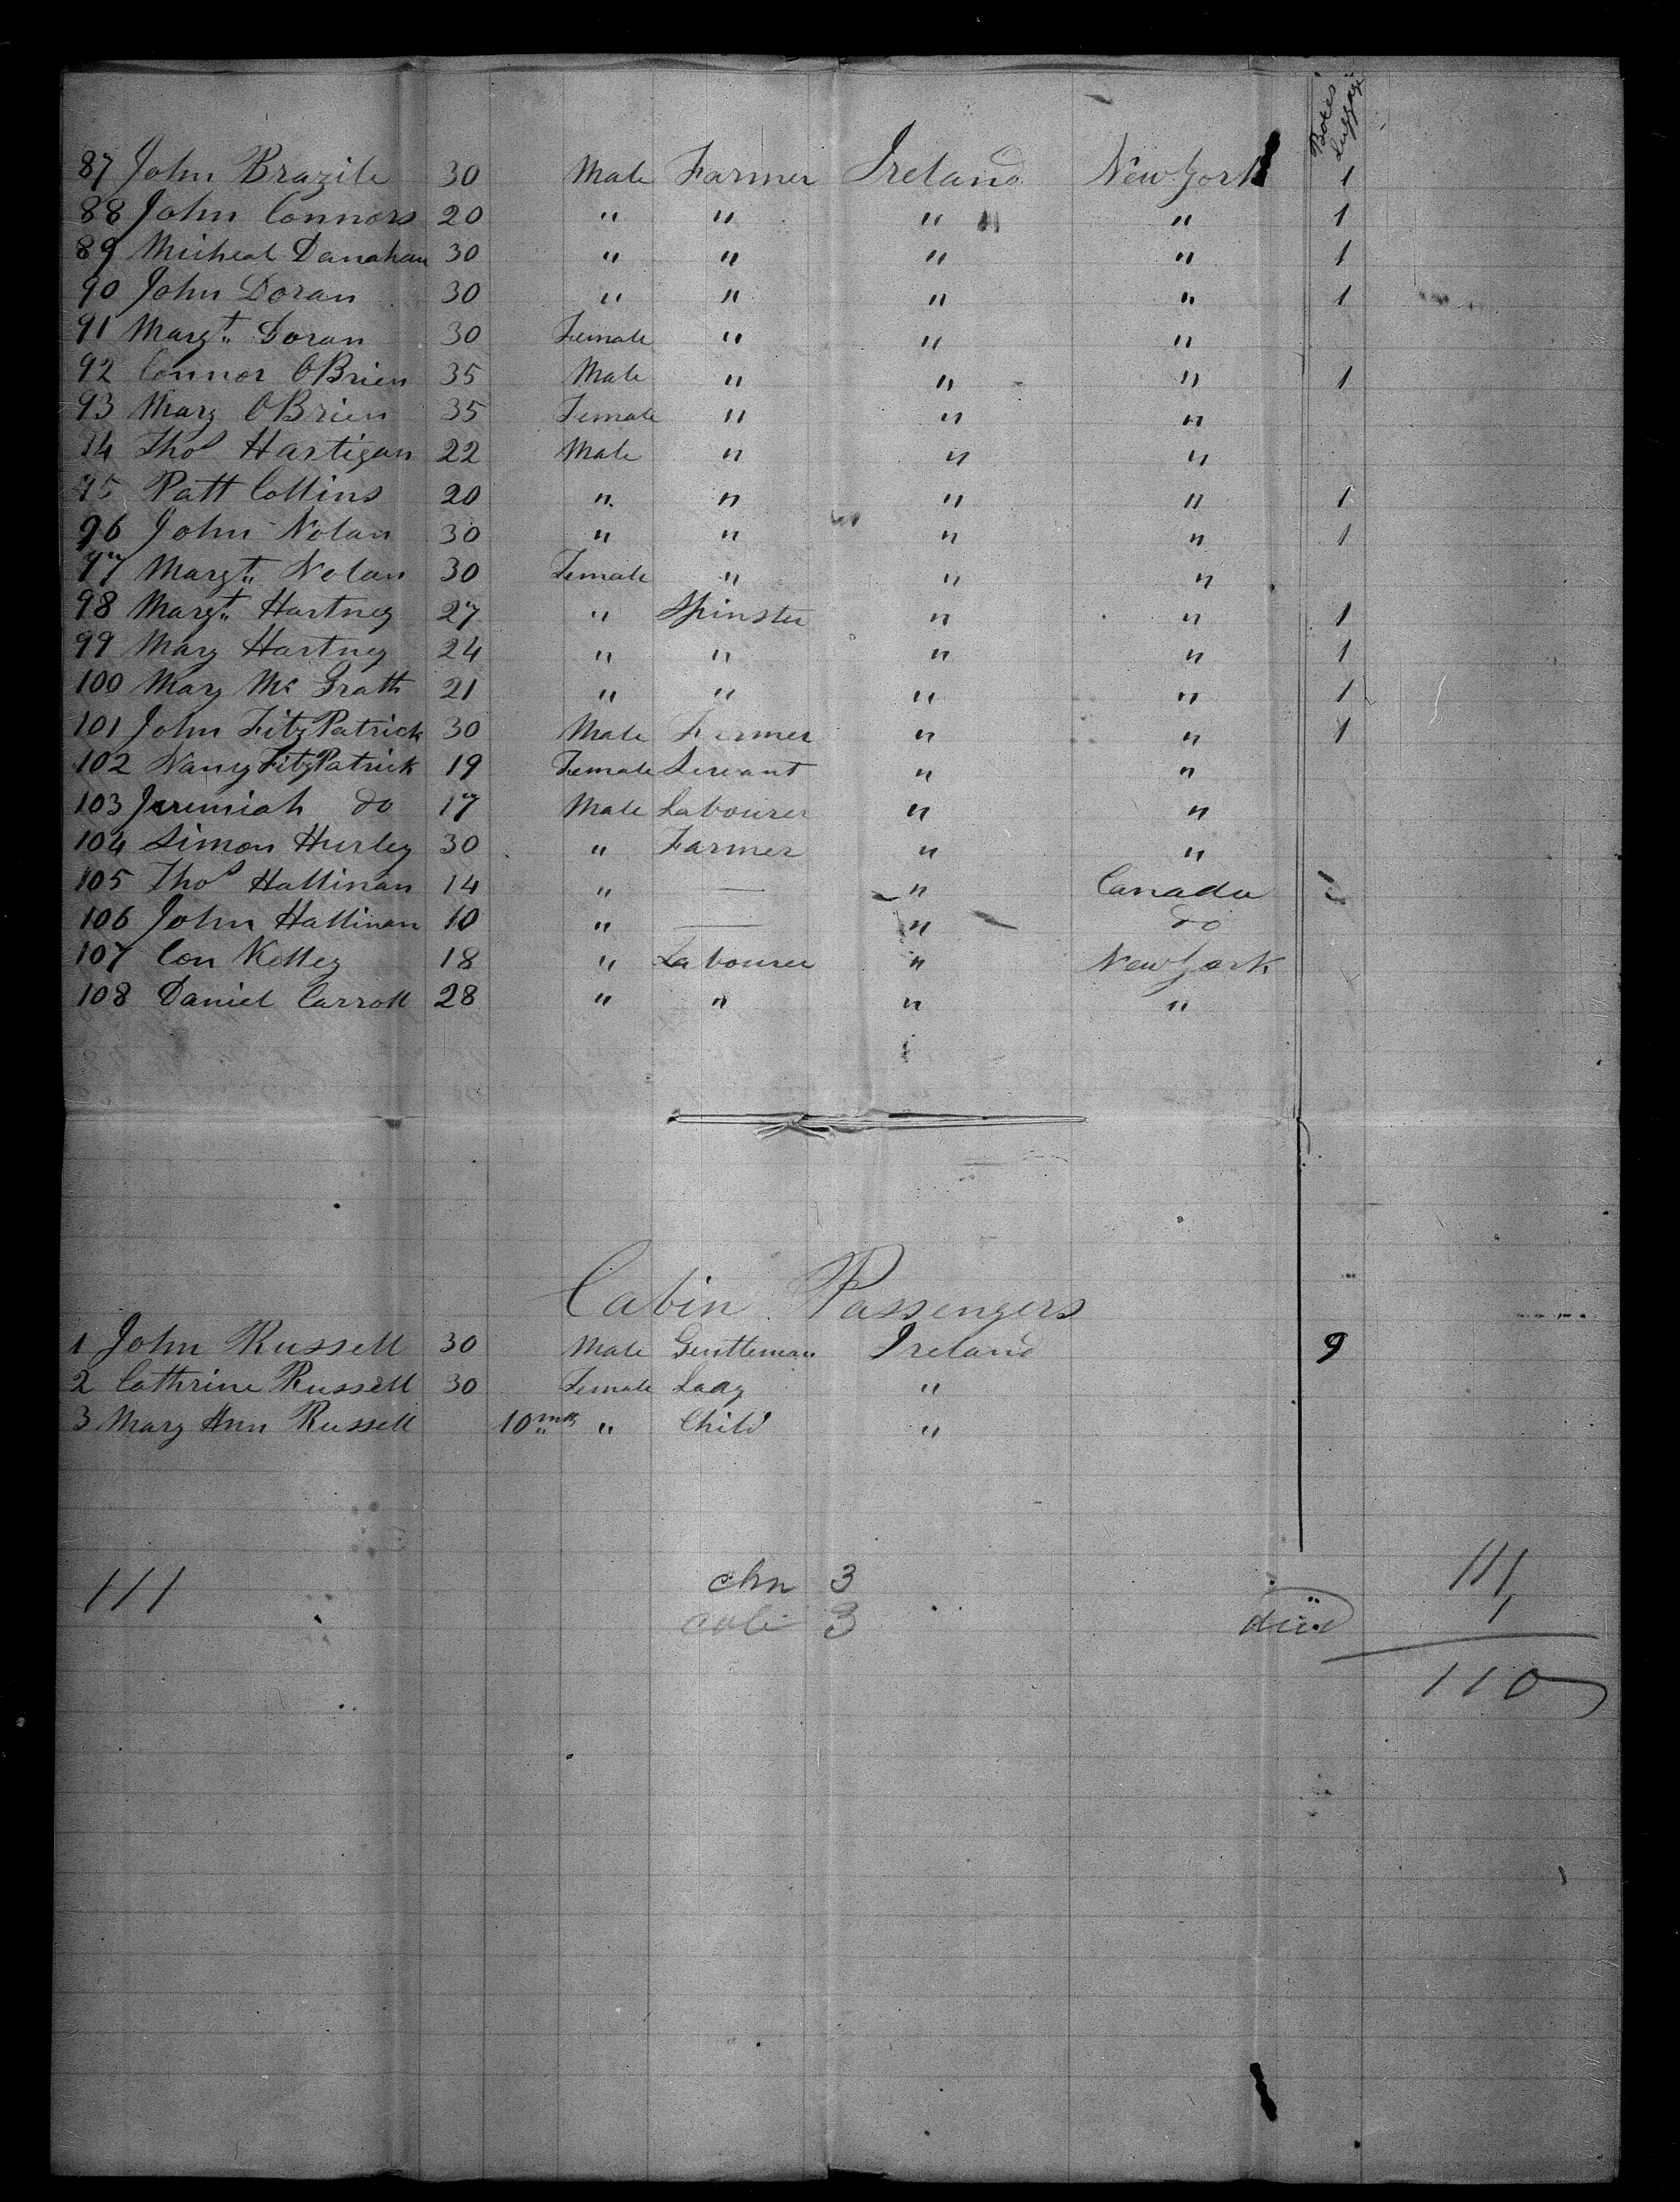 Boxes Luggage
87 John Brazile 30 Male Farmer Ireland New York 1
88 John Connors 20 " " " " 1
89 Micheal Danahau 30 " " " " 1
90 John Doran 30 " " " " 1
91 Margt. Doran 30 Female " " "
92 Connor OBrien 35 Male " " " 1
93 Mary OBrien 35 Female " " "
94 Thos Hartigan 22 Male " " "
95 Patt Collins 20 " " " " 1
96 John Nolan 30 " " " " 1
97 Margt. Nolan 30 Female " " "
98 Margt. Hartney 27 " Spinster " " 1
99 Mary Hartney 24 " " " " 1
100 Mary Mc Grath 21 " " " " 1
101 John FitzPatrick 30 Male Farmer " " 1
102 Nancy FitzPatrick 19 Female Servant " "
103 Jeremiah do 17 Male Labourer " "
104 Simon Hurley 30 " Farmer " "
105 Thos Hallinan 14 " — " Canada
106 John Hallinan 10 " — " do
107 Con Kelley 18 " Labourer " New York
108 Daniel Carroll 28 " " " "
Cabin Passengers
1 John Russell 30 Male Gentleman Ireland 9
2 Cathrine Russell 30 Female Lady "
3 Mary Ann Russell 10 mths " Child "
111 chn 3 111
cab 3 died 1
110